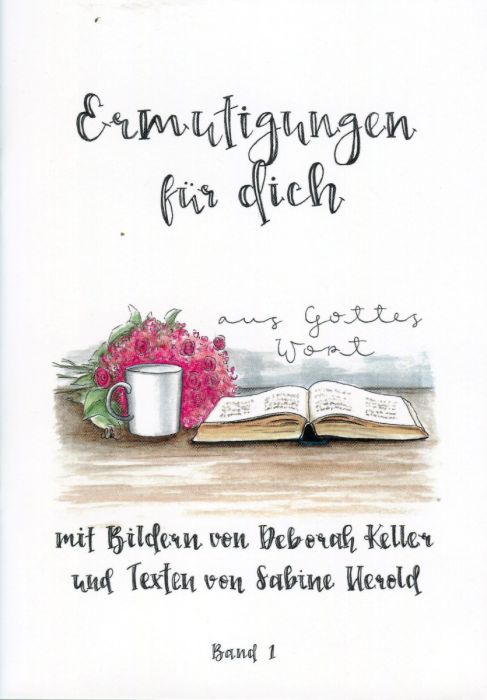 Ermutigungen
für dich
aus Gottes
Wort
mit Bildern von Deborah Keller
und Texten von Sabine Herold
Band 1